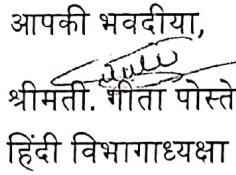 आपकी भवदीया,
श्रीमती. गीता पोस्ते
हिंदी विभागाध्यक्षा